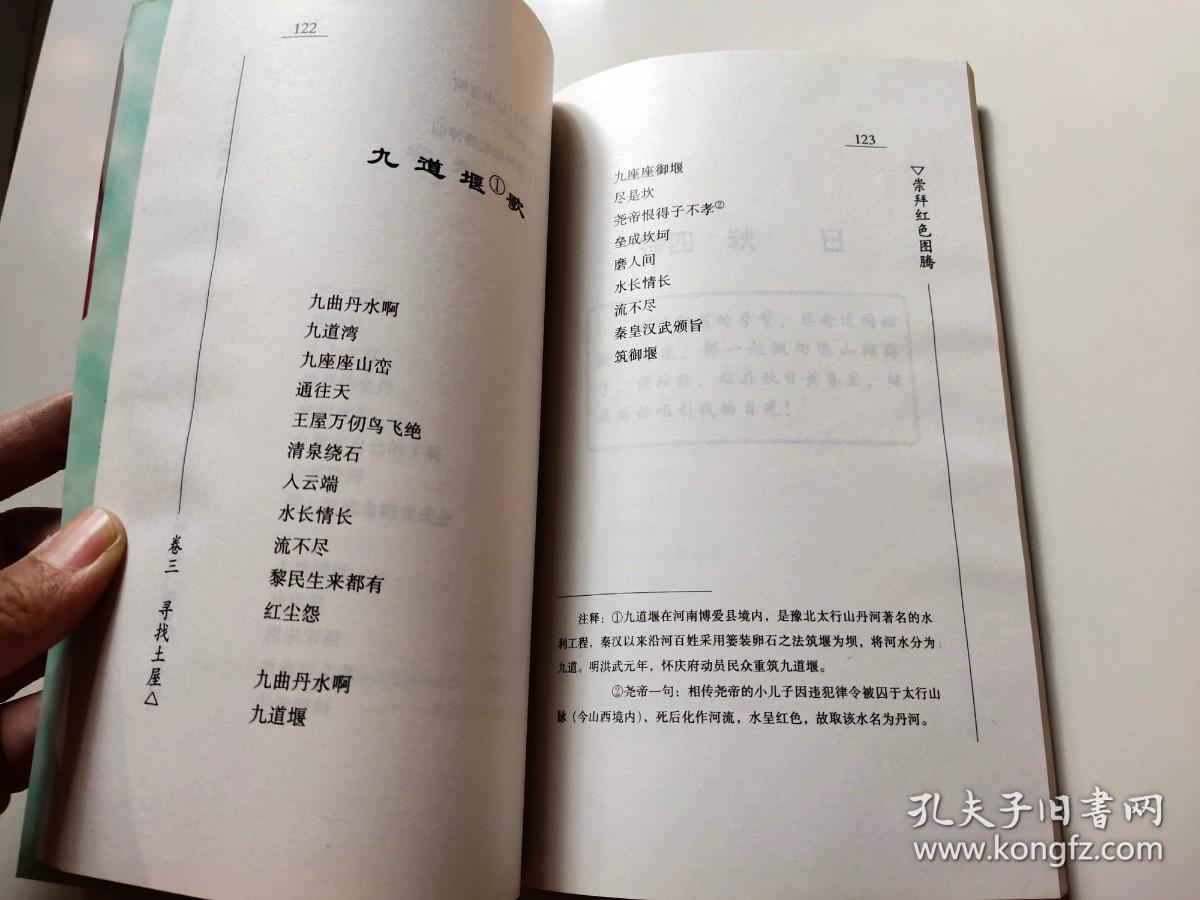 122
九道堰①歌
九曲丹水啊
九道湾
九座座山峦
通往天
王屋万仞鸟飞绝
清泉绕石
入云端
水长情长
流不尽
黎民生来都有
红尘怨
九曲丹水啊
九道堰
卷三 寻找土屋△
123
▽崇拜红色图腾
九座座御堰
尽是坎
尧帝恨得子不孝②
垒成坎坷
磨人间
水长情长
流不尽
秦皇汉武颁旨
筑御堰
注释：①九道堰在河南博爱县境内，是豫北太行山丹河著名的水
利工程，秦汉以来沿河百姓采用篓装卵石之法筑堰为坝，将河水分为
九道。明洪武元年，怀庆府动员民众重筑九道堰。
②尧帝一句：相传尧帝的小儿子因违犯律令被囚于太行山
脉（今山西境内），死后化作河流，水呈红色，故取该水名为丹河。
孔夫子旧书网
www.kongfz.com